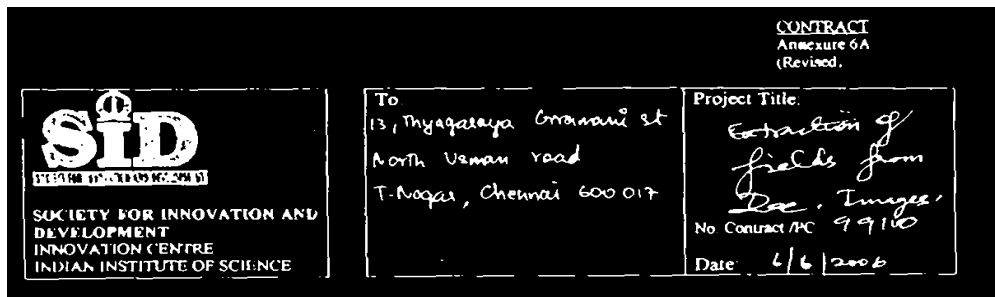 CONTRACT
Annexure 6A
(Revised,
SID
SOCIETY FOR INNOVATION AND
DEVELOPMENT
INNOVATION CENTRE
INDIAN INSTITUTE OF SCIENCE
To
13, Thyagaraya Gramani st
North Usman road
T-Nagar, Chennai 600 017
Project Title:
Extraction of
fields from
Doc. Images.
No. Contract /PC 99100
Date: 6/6/2006